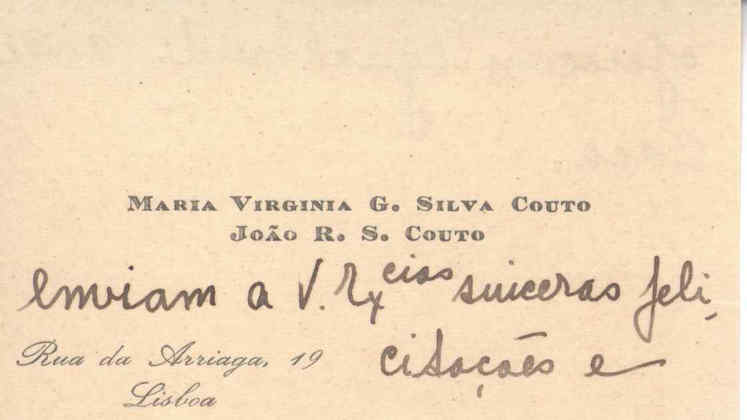 Maria Virginia G. Silva Couto
João R. S. Couto
enviam a V. Ex.cias sinceras feli,
Rua da Arriaga, 19
citações e
Lisboa